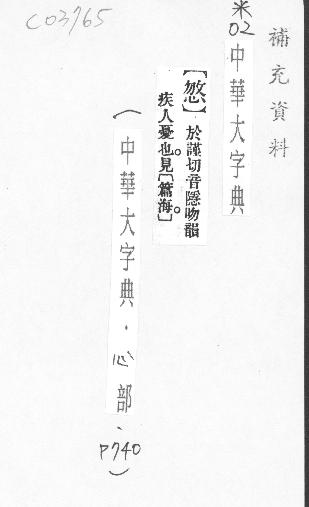 C03765
補充資料
※02中華大字典
【】於謹切音隱吻韻
疾人憂也。見〔篇海〕。
(中華大字典.心部、P740)